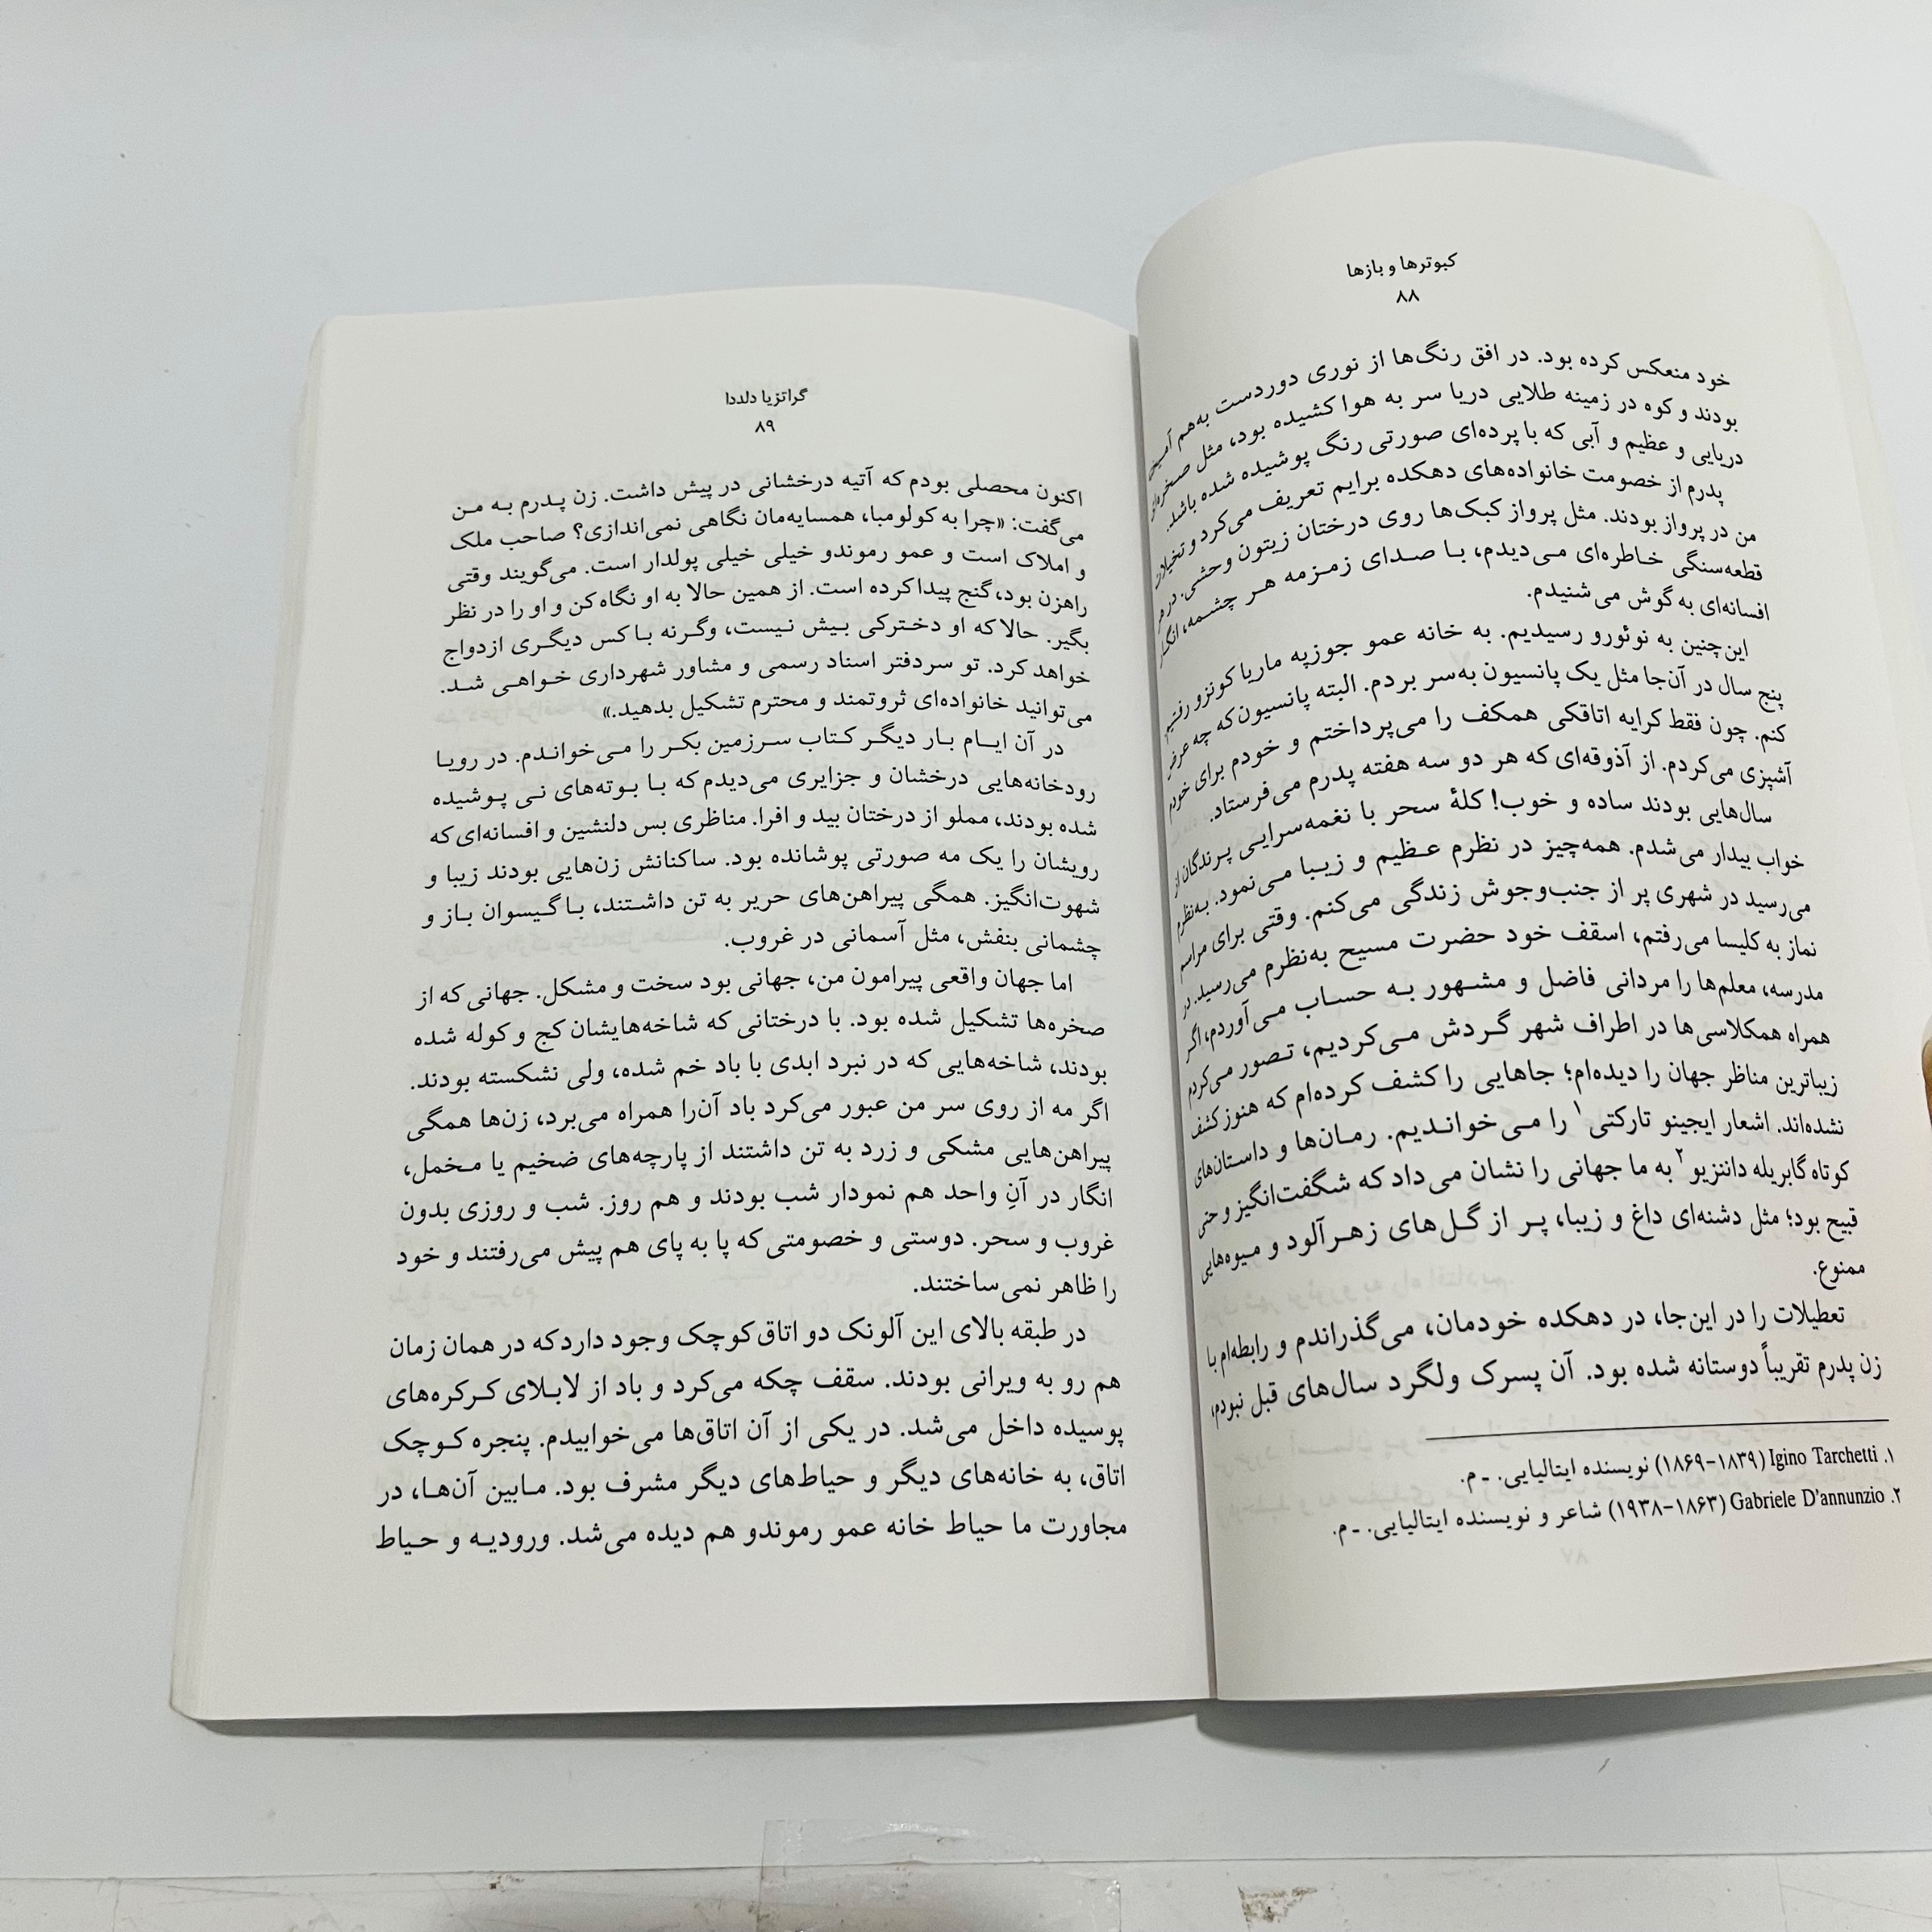 کبوترها و بازها
۸۸
خود منعکس کرده بود. در افق رنگ‌ها از نوری دوردست به‌هم
بودند و کوه در زمینه طلایی دریا سر به هوا کشیده بود، مثل صخره‌ای
دریایی و عظیم و آبی که با پرده‌ای صورتی رنگ پوشیده شده باشد.
پدرم از خصومت خانواده‌های دهکده برایم تعریف می‌کرد و تخیلات
من در پرواز بودند. مثل پرواز کبک‌ها روی درختان زیتون وحشی. در هر
قطعه‌سنگی خاطره‌ای می‌دیدم، با صدای زمزمه هر چشمه، انگار
افسانه‌ای به گوش می‌شنیدم.
این‌چنین به نوئورو رسیدیم. به خانه عمو جوزپه ماریا کونزو رفتیم.
پنج سال در آن‌جا مثل یک پانسیون به‌سر بردم. البته پانسیون که چه عرض
کنم. چون فقط کرایه اتاقکی همکف را می‌پرداختم و خودم برای خودم
آشپزی می‌کردم. از آذوقه‌ای که هر دو سه هفته پدرم می‌فرستاد.
سال‌هایی بودند ساده و خوب! کلهٔ سحر با نغمه‌سرایی پرندگان از
خواب بیدار می‌شدم. همه‌چیز در نظرم عظیم و زیبا می‌نمود. به‌نظرم
می‌رسید در شهری پر از جنب‌وجوش زندگی می‌کنم. وقتی برای مراسم
نماز به کلیسا می‌رفتم، اسقف خود حضرت مسیح به‌نظرم می‌رسید. در
مدرسه، معلم‌ها را مردانی فاضل و مشهور به حساب می‌آوردم، اگر
همراه همکلاسی‌ها در اطراف شهر گردش می‌کردیم، تصور می‌کردم
زیباترین مناظر جهان را دیده‌ام؛ جاهایی را کشف کرده‌ام که هنوز کشف
نشده‌اند. اشعار ایجینو تارکتی۱ را می‌خواندیم. رمان‌ها و داستان‌های
کوتاه گابریله داننزیو۲ به ما جهانی را نشان می‌داد که شگفت‌انگیز و حتی
قبیح بود؛ مثل دشنه‌ای داغ و زیبا، پر از گل‌های زهرآلود و میوه‌هایی
ممنوع.
تعطیلات را در این‌جا، در دهکده خودمان، می‌گذراندم و رابطه‌ام با
زن پدرم تقریباً دوستانه شده بود. آن پسرک ولگرد سال‌های قبل نبودم،
۱. Igino Tarchetti (۱۸۳۹-۱۸۶۹) نویسنده ایتالیایی. ـ م.
۲. Gabriele D'annunzio (۱۸۶۳-۱۹۳۸) شاعر و نویسنده ایتالیایی. ـ م.
گراتزیا دلددا
۸۹
اکنون محصلی بودم که آتیه درخشانی در پیش داشت. زن پدرم به من
می‌گفت: «چرا به کولومبا، همسایه‌مان نگاهی نمی‌اندازی؟ صاحب ملک
و املاک است و عمو رموندو خیلی خیلی پولدار است. می‌گویند وقتی
راهزن بود، گنج پیدا کرده است. از همین حالا به او نگاه کن و او را در نظر
بگیر. حالا که او دخترکی بیش نیست، وگرنه با کس دیگری ازدواج
خواهد کرد. تو سردفتر اسناد رسمی و مشاور شهرداری خواهی شد.
می‌توانید خانواده‌ای ثروتمند و محترم تشکیل بدهید.»
در آن ایام بار دیگر کتاب سرزمین بکر را می‌خواندم. در رویا
رودخانه‌هایی درخشان و جزایری می‌دیدم که با بوته‌های نی پوشیده
شده بودند، مملو از درختان بید و افرا. مناظری بس دلنشین و افسانه‌ای که
رویشان را یک مه صورتی پوشانده بود. ساکنانش زن‌هایی بودند زیبا و
شهوت‌انگیز. همگی پیراهن‌های حریر به تن داشتند، با گیسوان باز و
چشمانی بنفش، مثل آسمانی در غروب.
اما جهان واقعی پیرامون من، جهانی بود سخت و مشکل. جهانی که از
صخره‌ها تشکیل شده بود. با درختانی که شاخه‌هایشان کج و کوله شده
بودند، شاخه‌هایی که در نبرد ابدی با باد خم شده، ولی نشکسته بودند.
اگر مه از روی سر من عبور می‌کرد باد آن‌را همراه می‌برد، زن‌ها همگی
پیراهن‌هایی مشکی و زرد به تن داشتند از پارچه‌های ضخیم یا مخمل،
انگار در آنِ واحد هم نمودار شب بودند و هم روز. شب و روزی بدون
غروب و سحر. دوستی و خصومتی که پا به پای هم پیش می‌رفتند و خود
را ظاهر نمی‌ساختند.
در طبقه بالای این آلونک دو اتاق کوچک وجود دارد که در همان زمان
هم رو به ویرانی بودند. سقف چکه می‌کرد و باد از لابلای کرکره‌های
پوسیده داخل می‌شد. در یکی از آن اتاق‌ها می‌خوابیدم. پنجره کوچک
اتاق، به خانه‌های دیگر و حیاط‌های دیگر مشرف بود. مابین آن‌ها، در
مجاورت ما حیاط خانه عمو رموندو هم دیده می‌شد. ورودیه و حیاط